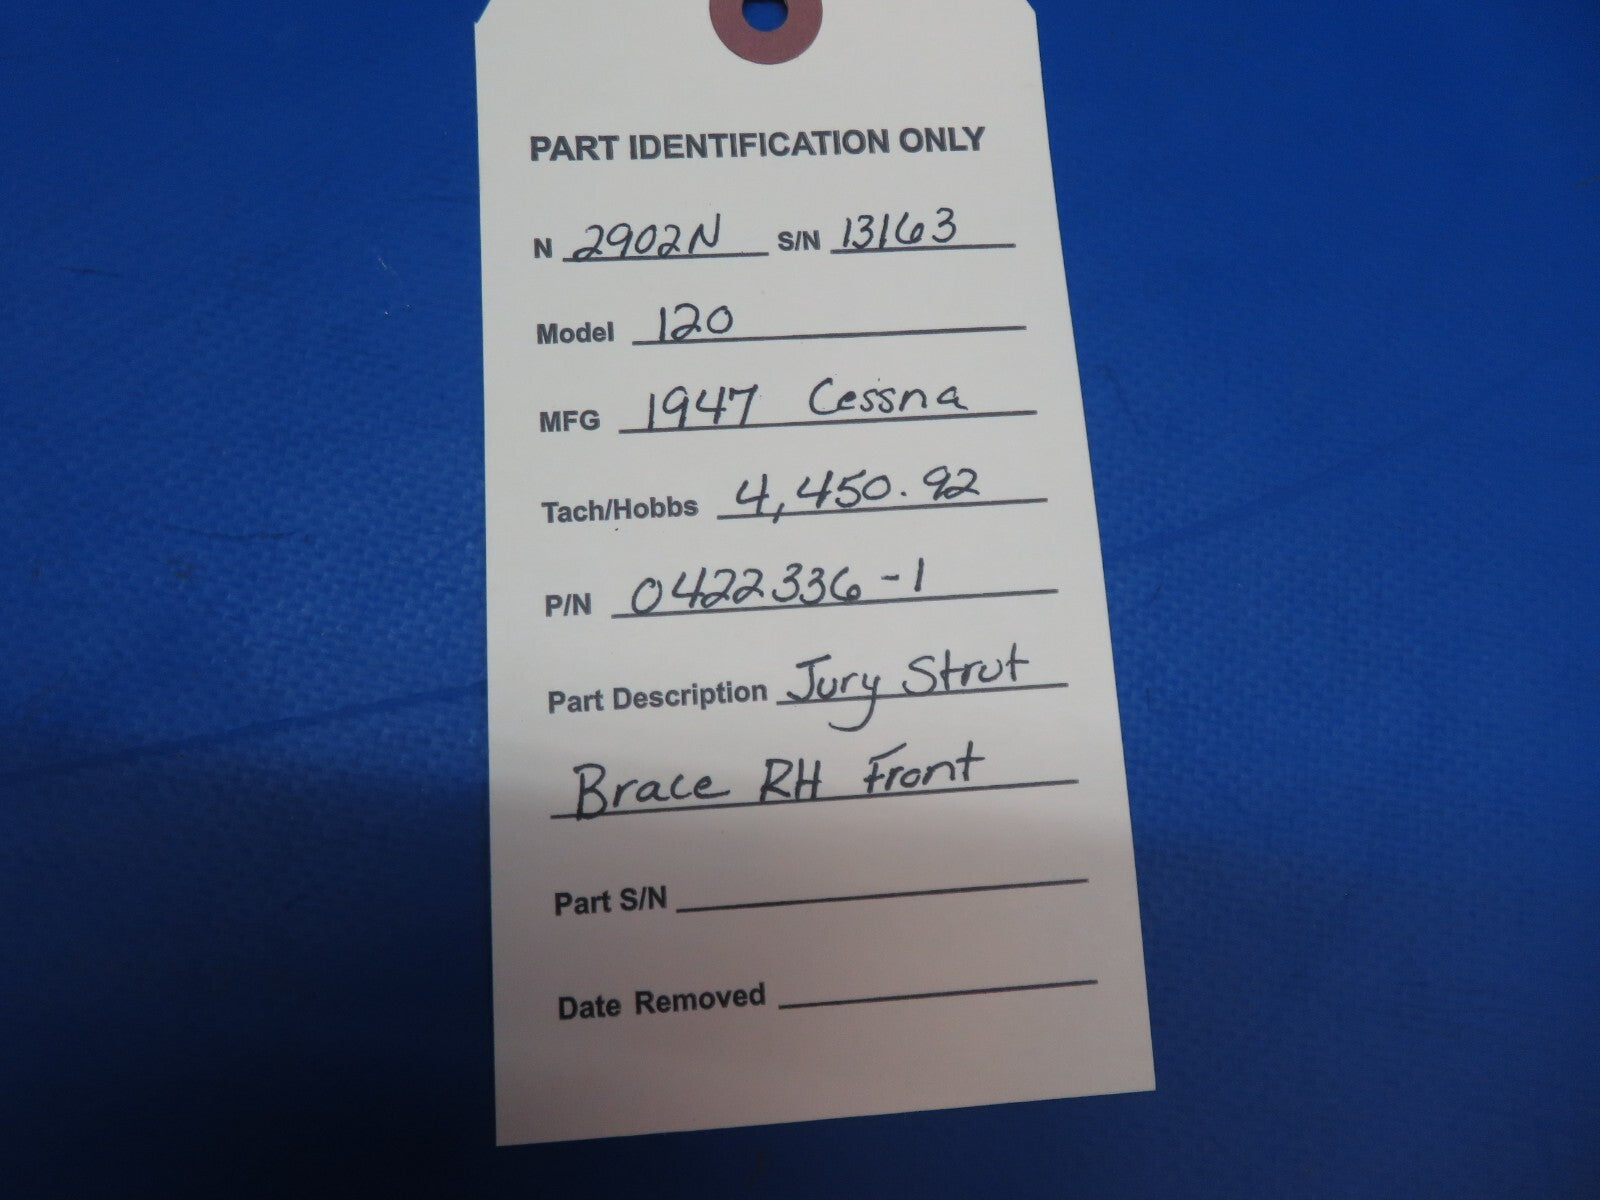 PART IDENTIFICATION ONLY
N 2902N S/N 13163
Model 120
MFG 1947 Cessna
Tach/Hobbs 4,450.92
P/N 0422336-1
Part Description Jury Strut
Brace RH Front
Part S/N
Date Removed